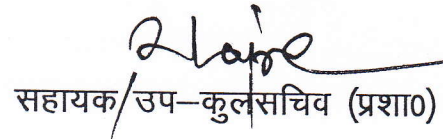 सहायक/उप–कुलसचिव (प्रशा0)